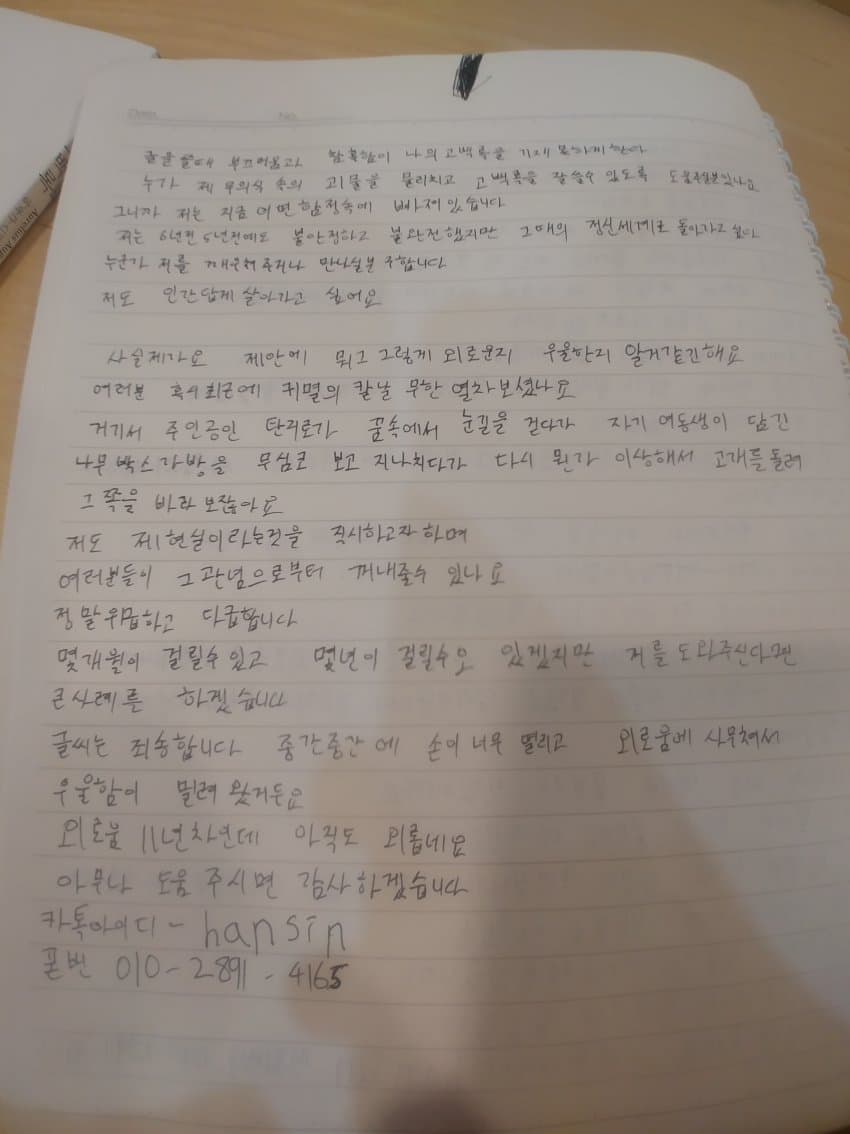 글을 쓸때 부끄러움과 참혹함이 나의 고백록을 기재 못하게 한다
누가 제 무의식 속의 괴물을 물리치고 고백록을 잘 쓸수 있도록 도움주실분 있나요
그니까 저는 지금 어떤 함정속에 빠져있습니다
저는 6년전 5년전에도 불안정하고 불완전했지만 그때의 정신세계로 돌아가고 싶다
누군가 저를 깨우쳐 주거나 만나실분 구합니다
저도 인간답게 살아가고 싶어요
사실제가요 제안에 뭐그 그렇게 외로운지 우울한지 알거같긴해요
여러분 혹시 최근에 귀멸의 칼날 무한 열차보셨나요
거기서 주인공인 탄지로가 꿈속에서 눈길을 걷다가 자기 여동생이 담긴
나무박스가방을 무심코 보고 지나치다가 다시 뭔가 이상해서 고개를 돌려
그 쪽을 바라 보잖아요
저도 제 현실이라는것을 직시하고자하며
여러분들이 그 관념으로부터 꺼내줄수 있나요
정말위급하고 다급합니다
몇개월이 걸릴수있고 몇년이 걸릴수도 있겠지만 저를 도와주신다면
큰사례를 하겠습니다
글씨는 죄송합니다 중간중간에 손이 너무 떨리고 외로움에 사무쳐서
우울함이 밀려 왔거든요
외로움 11년차인데 아직도 외롭네요
아무나 도움 주시면 감사하겠습니다
카톡아이디 - hansin
폰번 010-2891-4165